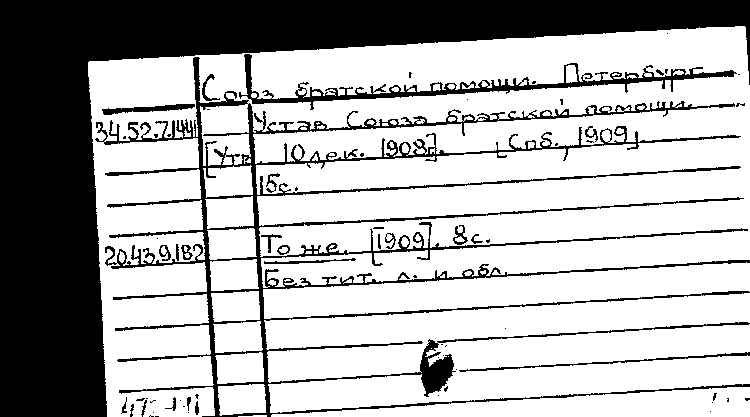 Союз братской помощи. Петербург
34.52.7.1441 Устав Союза братской помощи.
[Утв. 10 дек. 1908г]. [Спб., 1909].
15с.
20.43.9.182 То же. [1909]. 8с.
Без тит. л. и обл.